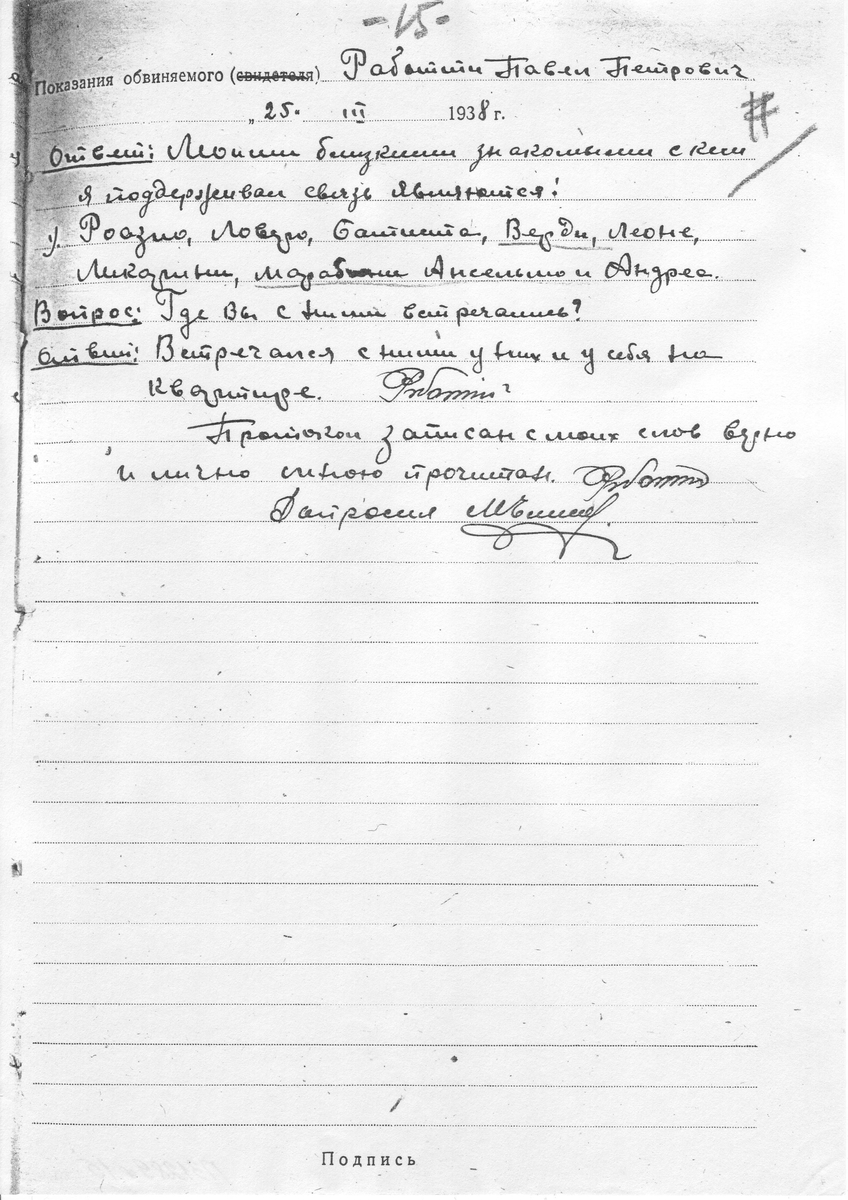 -15-
Показания обвиняемого (свидетеля) Работти Павел Петрович
„25" III 1938 г.
Ответ: Моими близкими знакомыми с кем
я поддерживал связь являются:
Роазио, Ловера, Батиста, Верди, Леоне,
Ликарини, Марабини Ансельмо и Андреа.
Вопрос: Где Вы с ними встречались?
Ответ: Встречался с ними у них и у себя на
квартире. Работти
Протокол записан с моих слов верно
и лично мною прочитан. Работти
Допросил
Подпись